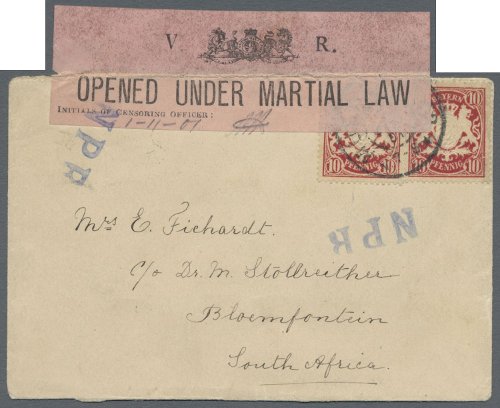 V. R.
OPENED UNDER MARTIAL LAW
INITIALS OF CENSORING OFFICER:
1-11-01
BAYERN
10 10
PFENNIG
10 10
PFENNIG
NPR
NPR
Mrs E. Fichardt.
c/o Dr. M. Stollreither
Bloemfontein
South Africa.